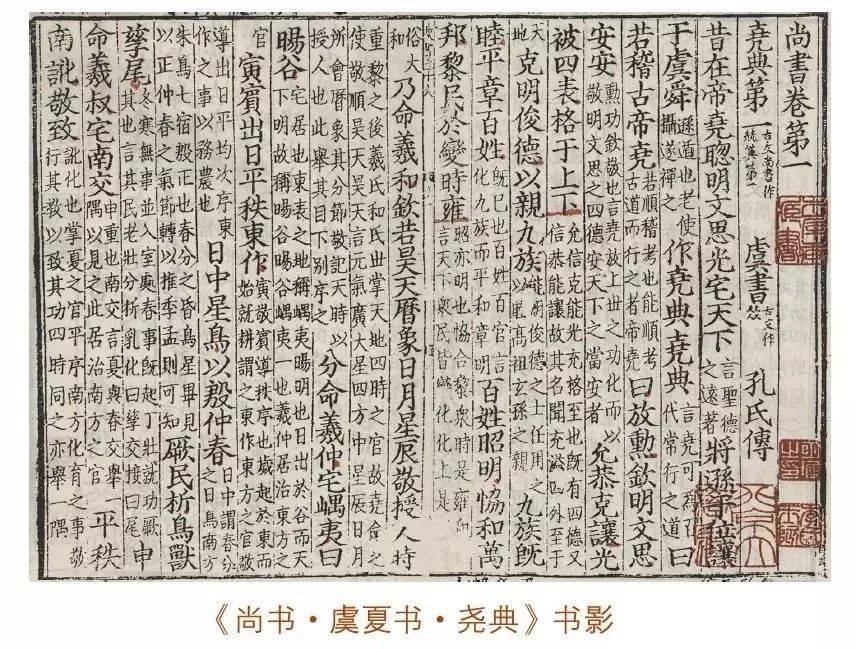 尚書卷第一
堯典第一 古文尚書作 第一 虞書 古文作 孔氏傳
昔在帝堯聰明文思光宅天下 言聖德之遠著 將孫于位讓
于虞舜 孫遁也老使攝遂禪之 作堯典堯典 言堯可爲百代常行之道 曰
若稽古帝堯 若順稽考也能順考古道而行之者帝堯 曰放勳欽明文思
安安 勳功欽敬也言堯放上世之功化而以敬明文思之四德安天下之當安者 允恭克讓光
被四表格于上下 允信克能光充格至也既有四德又信恭能讓故其名聞充溢四外至于
天地 克明俊德以親九族 能明俊德之士任用之以睦高祖玄孫之親 九族既
睦平章百姓 既已也百姓百官言化九族而平和章明 百姓昭明恊和萬
邦黎民於變時雍 昭亦明也恊合黎衆時是雍和也言天下衆民皆變化化上是以風
俗大和 乃命羲和欽若昊天曆象日月星辰敬授人時
重黎之後羲氏和氏世掌天地四時之官故堯命之使敬順昊天昊天言元氣廣大星四方中星辰日月
所會曆象其分節敬記天時以授人也此舉其目下別序之 分命羲仲宅嵎夷曰
暘谷 宅居也東表之地稱嵎夷暘明也日出於谷而天下明故稱暘谷暘谷嵎夷一也羲仲居治東方之官
寅賓出日平秩東作 寅敬賓導秩序也歲起於東而始就耕謂之東作東方之官敬
導出日平均次序東作之事以務農也 日中星鳥以殷仲春 日中謂春分之日鳥南方
朱鳥七宿殷正也春分之昏鳥星畢見以正仲春之氣節轉以推季孟則可知 厥民析鳥獸
孳尾 冬寒無事並入室處春事既起丁壯就功厥其也言其民老壯分析乳化曰孳交接曰尾 申
命羲叔宅南交 申重也南交言夏與春交舉一隅以見之此居治南方之官 平秩
南訛敬致 訛化也掌夏之官平序南方化育之事敬行其敎以致其功四時同之亦舉一隅
《尚书·虞夏书·尧典》书影